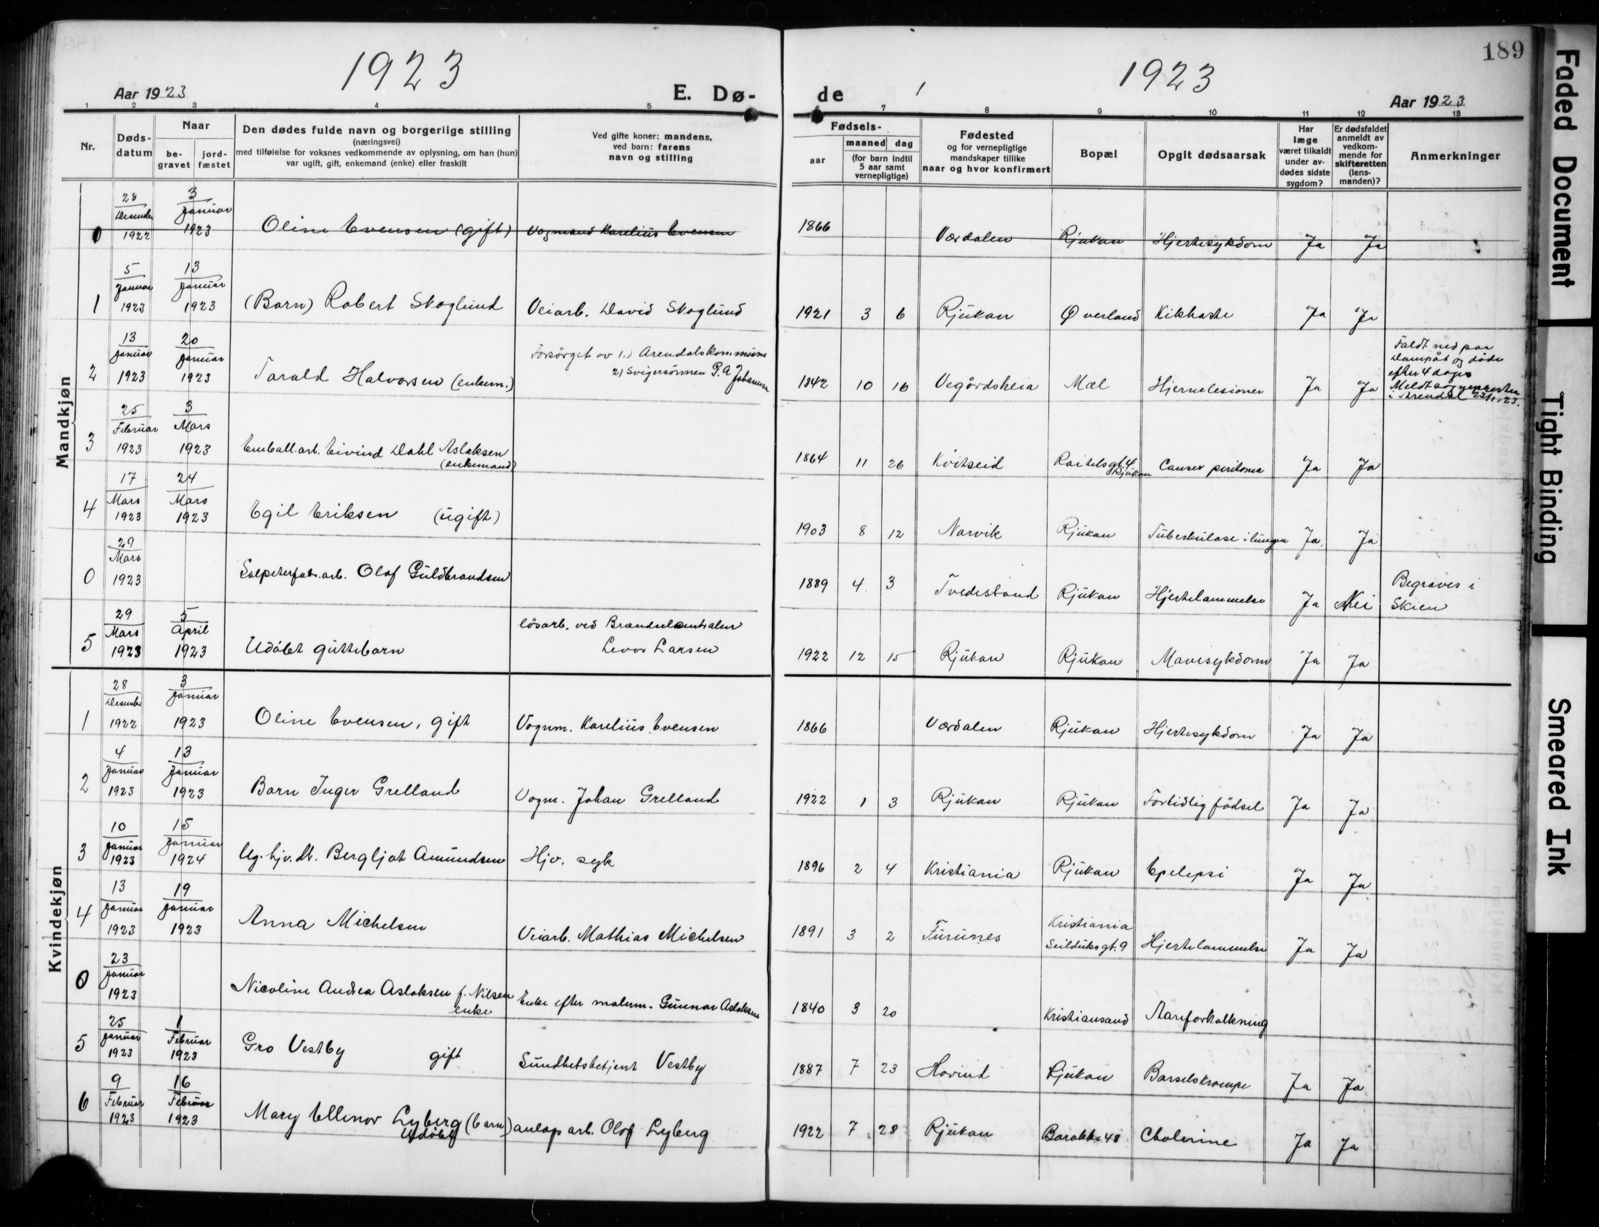 1923
1923
189
Aar 1923
E. Dø-
de
Aar 1923
1 2 3 4 5 6 7 8 9 10 11 12 13
Nr.
Døds-
datum
Naar
be-
gravet
jord-
fæstet
Den dødes fulde navn og borgerlige stilling
(næringsvei)
med tilføielse for voksnes vedkommende av oplysning, om han (hun)
var ugift, gift, enkemand (enke) eller fraskilt
Ved gifte koner: mandens,
ved barn: farens
navn og stilling
Fødsels-
aar
maaned dag
(for barn indtil
5 aar samt
vernepligtige)
Fødested
og for vernepligtige
mandskaper tillike
naar og hvor konfirmert
Bopæl
Opgit dødsaarsak
Har
læge
været tilkaldt
under av-
dødes sidste
sygdom?
Er dødsfaldet
anmeldt av
vedkom-
mende for
skifteretten
(lens-
manden)?
Anmerkninger
Mandkjøn
0 28 Desember 1922 3 Januar 1923 Oline Evensen (gift) Vogmand Karelius Evensen 1866 Værdalen Rjukan Hjertesykdom Ja Ja
1 5 Januar 1923 13 Januar 1923 (Barn) Robert Skoglund Veiarb. David Skoglund 1921 3 6 Rjukan Øverland Kikhoste Ja Ja
2 13 Januar 1923 20 Januar 1923 Tarald Halvorsen (enkem.) Forsørget av 1.) Arendals kommune
2) Svigersønnen G.A Johansen 1842 10 16 Vegårdsheia Mæl Hjernelesioner Ja Ja Faldt ned paa
dampåt og døde
efter 4 dage
Meldt sognepresten
i Arendal
3 25 Februar 1923 3 Mars 1923 Emball.arb. Eivind Dahl Aslaksen
(enkemand) 1864 11 26 Kvitseid Rjukan Cancer peritonei Ja Ja
4 17 Mars 1923 24 Mars 1923 Egil Eriksen (ugift) 1903 8 12 Narvik Rjukan Tuberkulose i lungen Ja. Ja
0 29 Mars 1923 Salpeterfab.arb. Olaf Guldbrandsen 1889 4 3 Tvedestrand Rjukan Hjertelammelse Ja Nei Begraves i
Skien
5 29 Mars 1923 5 April 1923 Udøbt guttebarn løsarb. ved Brændselcentralen
Levor Larsen 1922 12 15 Rjukan Rjukan Mavesykdom Ja Ja
Kvindekjøn
1 28 Desember 1922 3 Januar 1923 Oline Evensen, gift Vognm. Karelius Evensen 1866 Værdalen Rjukan Hjertesykdom Ja Ja
2 4 Januar 1923 13 Januar 1923 Barn Inger Grelland Vogm. Johan Grelland 1922 1 3 Rjukan Rjukan Fortidlig fødsel Ja Ja
3 10 Januar 1923 15 Januar 1924 Ug. hjv. dt. Bergljot Amundsen Hjv. syk 1896 2 4 Kristiania Rjukan Epelepsi Ja Ja
4 13 Januar 1923 19 Januar 1923 Anna Michelsen Veiarb. Mathias Michelsen 1891 3 2 Furunes Kristiania
Seilduksgt. 9 Hjertelammelse Ja Ja
0 23 Januar 1923 Nicoline Andrea Aslaksen f. Nilsen
enke Enke efter malerm. Gunnar Aslaksen 1840 3 20 Kristiansand Aareforkalkning
5 25 Januar 1923 1 Februar 1923 Gro Vestby gift Sundhetsbetjent Vestby 1887 7 23 Hovind Rjukan Barselskrampe Ja Ja
6 9 Februar 1923 16 Februar 1923 Mary Ellinor Lyberg (barn)
Udøbt anlap arb. Olof Lyberg 1922 7 28 Rjukan Barakke 48 Cholerine Ja Ja
Faded Document
Tight Binding
Smeared Ink